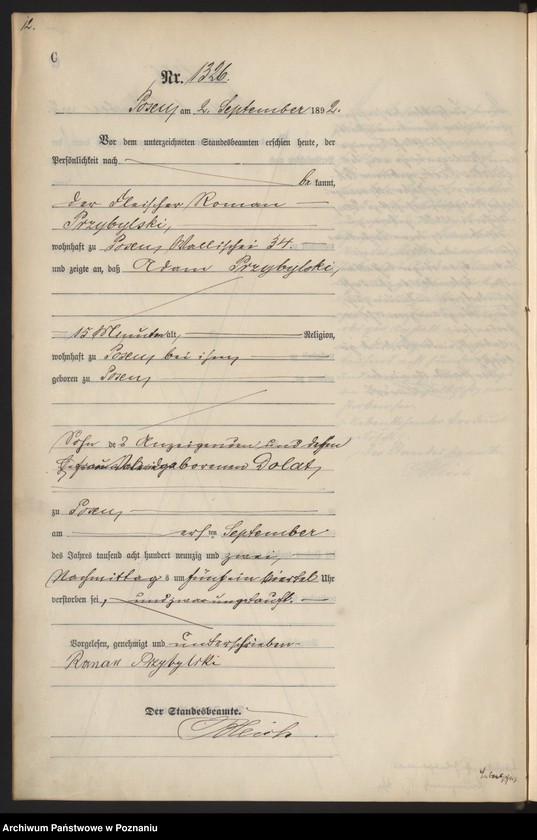 12.
C
Nr. 1326.
Posen am 2. September 1892.
Vor dem unterzeichneten Standesbeamten erschien heute, der
Persönlichkeit nach
be kannt,
der Fleischer Roman
Przybylski,
wohnhaft zu Posen, Wallischei 34.
und zeigte an, daß Adam Przybylski,
15 Minuten alt, Religion,
wohnhaft zu Posen bei ihm
geboren zu Posen
Sohn des Anzeigenden und dessen
Ehefrau geborenen Dolat,
zu Posen,
am ersten September
des Jahres tausend acht hundert neunzig und zwei,
Nachmittags um fünf ein viertel Uhr
verstorben sei, und zwar ungetauft.
Vorgelesen, genehmigt und unterschrieben
Roman Przybylski
Der Standesbeamte.
Archiwum Państwowe w Poznaniu